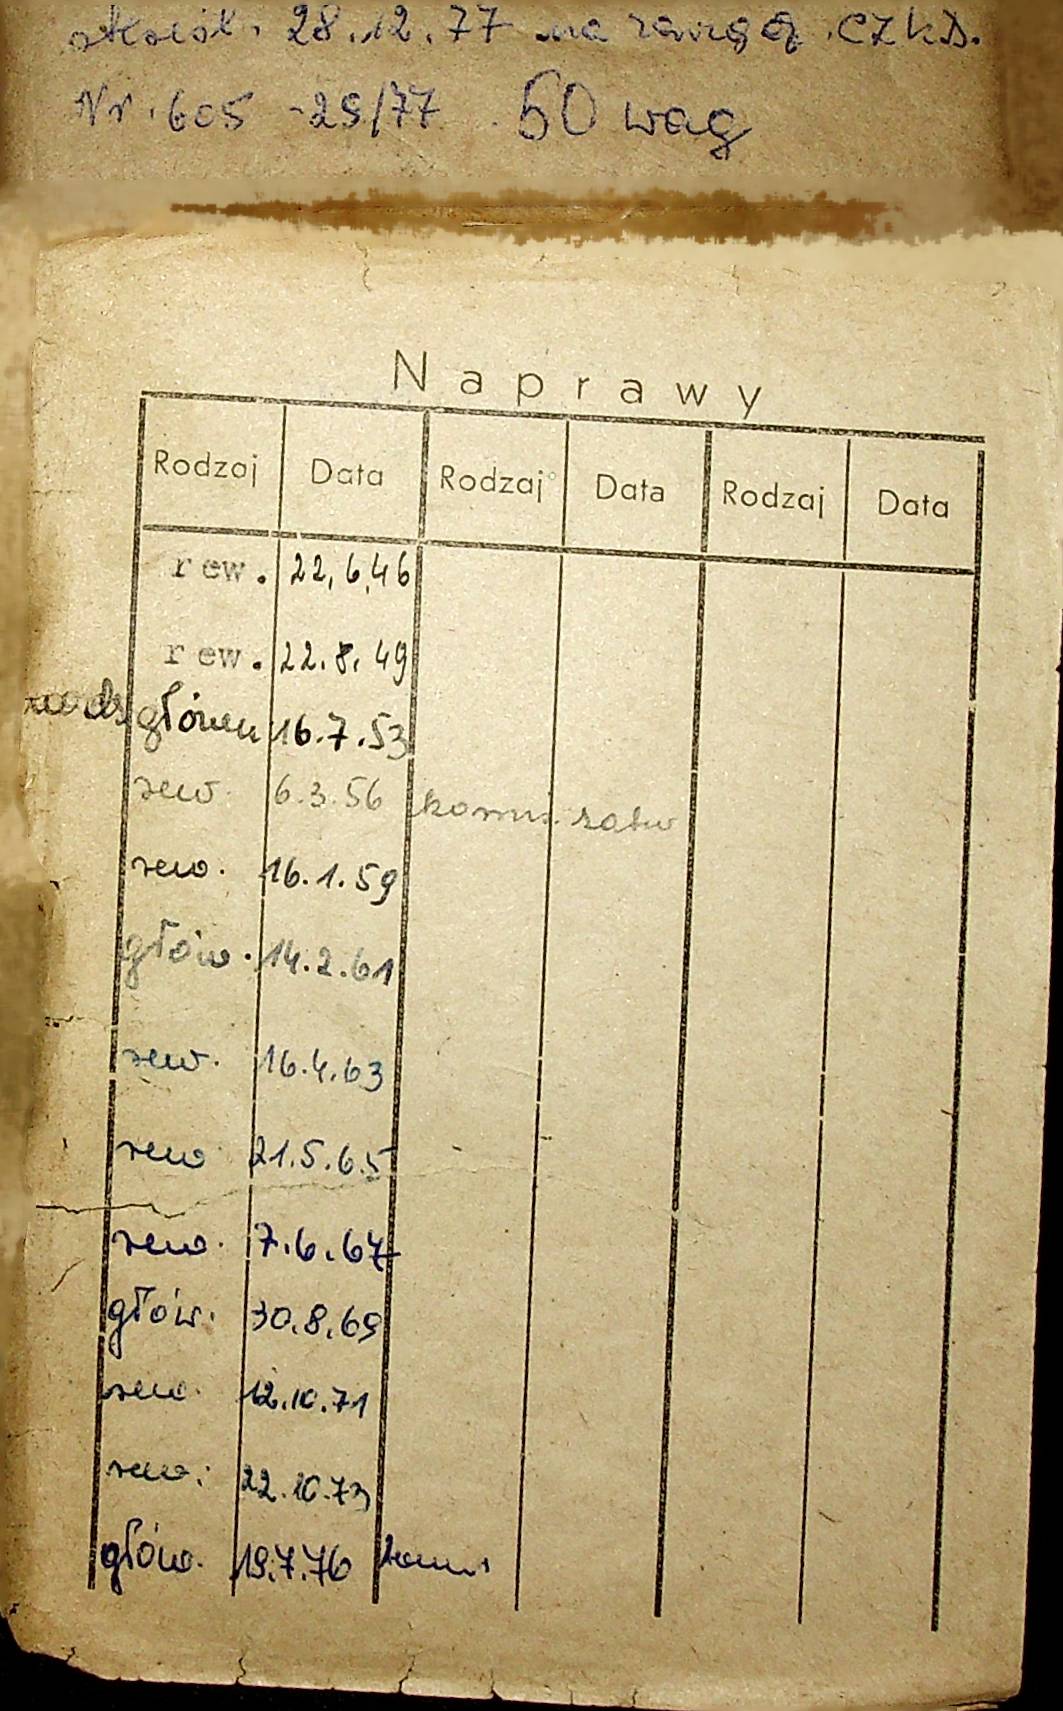 skreśl. 28.12.77 na CZKD.
Nr. 605 -29/77 50 wag
Naprawy
Rodzaj Data Rodzaj Data Rodzaj Data
rew. 22,6,46
rew. 22.8.49
główn 16.7.53
rew. 6.3.56
rew. 16.1.59
głów. 14.2.61
rew. 16.4.63
rew 21.5.65
rew. 7.6.67
głów. 30.8.69
rew. 12.10.71
rew. 22.10.73
głów. 19.7.76